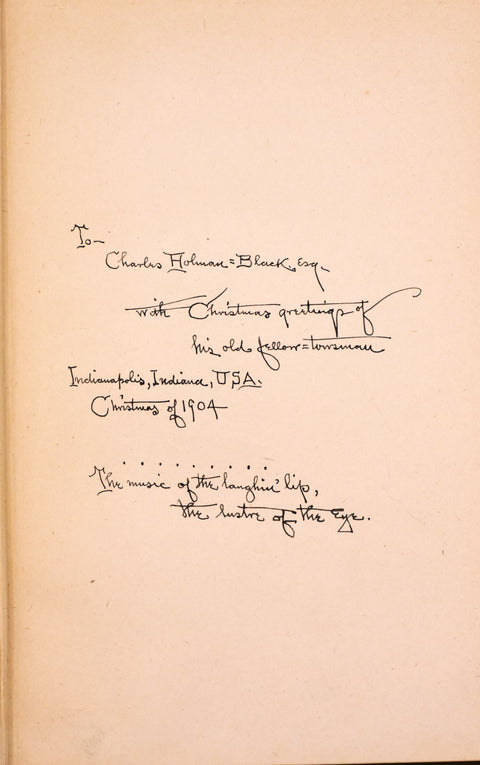 To—
Charles Holman=Black, Esq.
with Christmas greetings of
his old fellow=townsman
Indianapolis, Indiana, USA.
Christmas of 1904
. . . . . . . . .
The music of the laughin' lip,
the lustre of the eye.